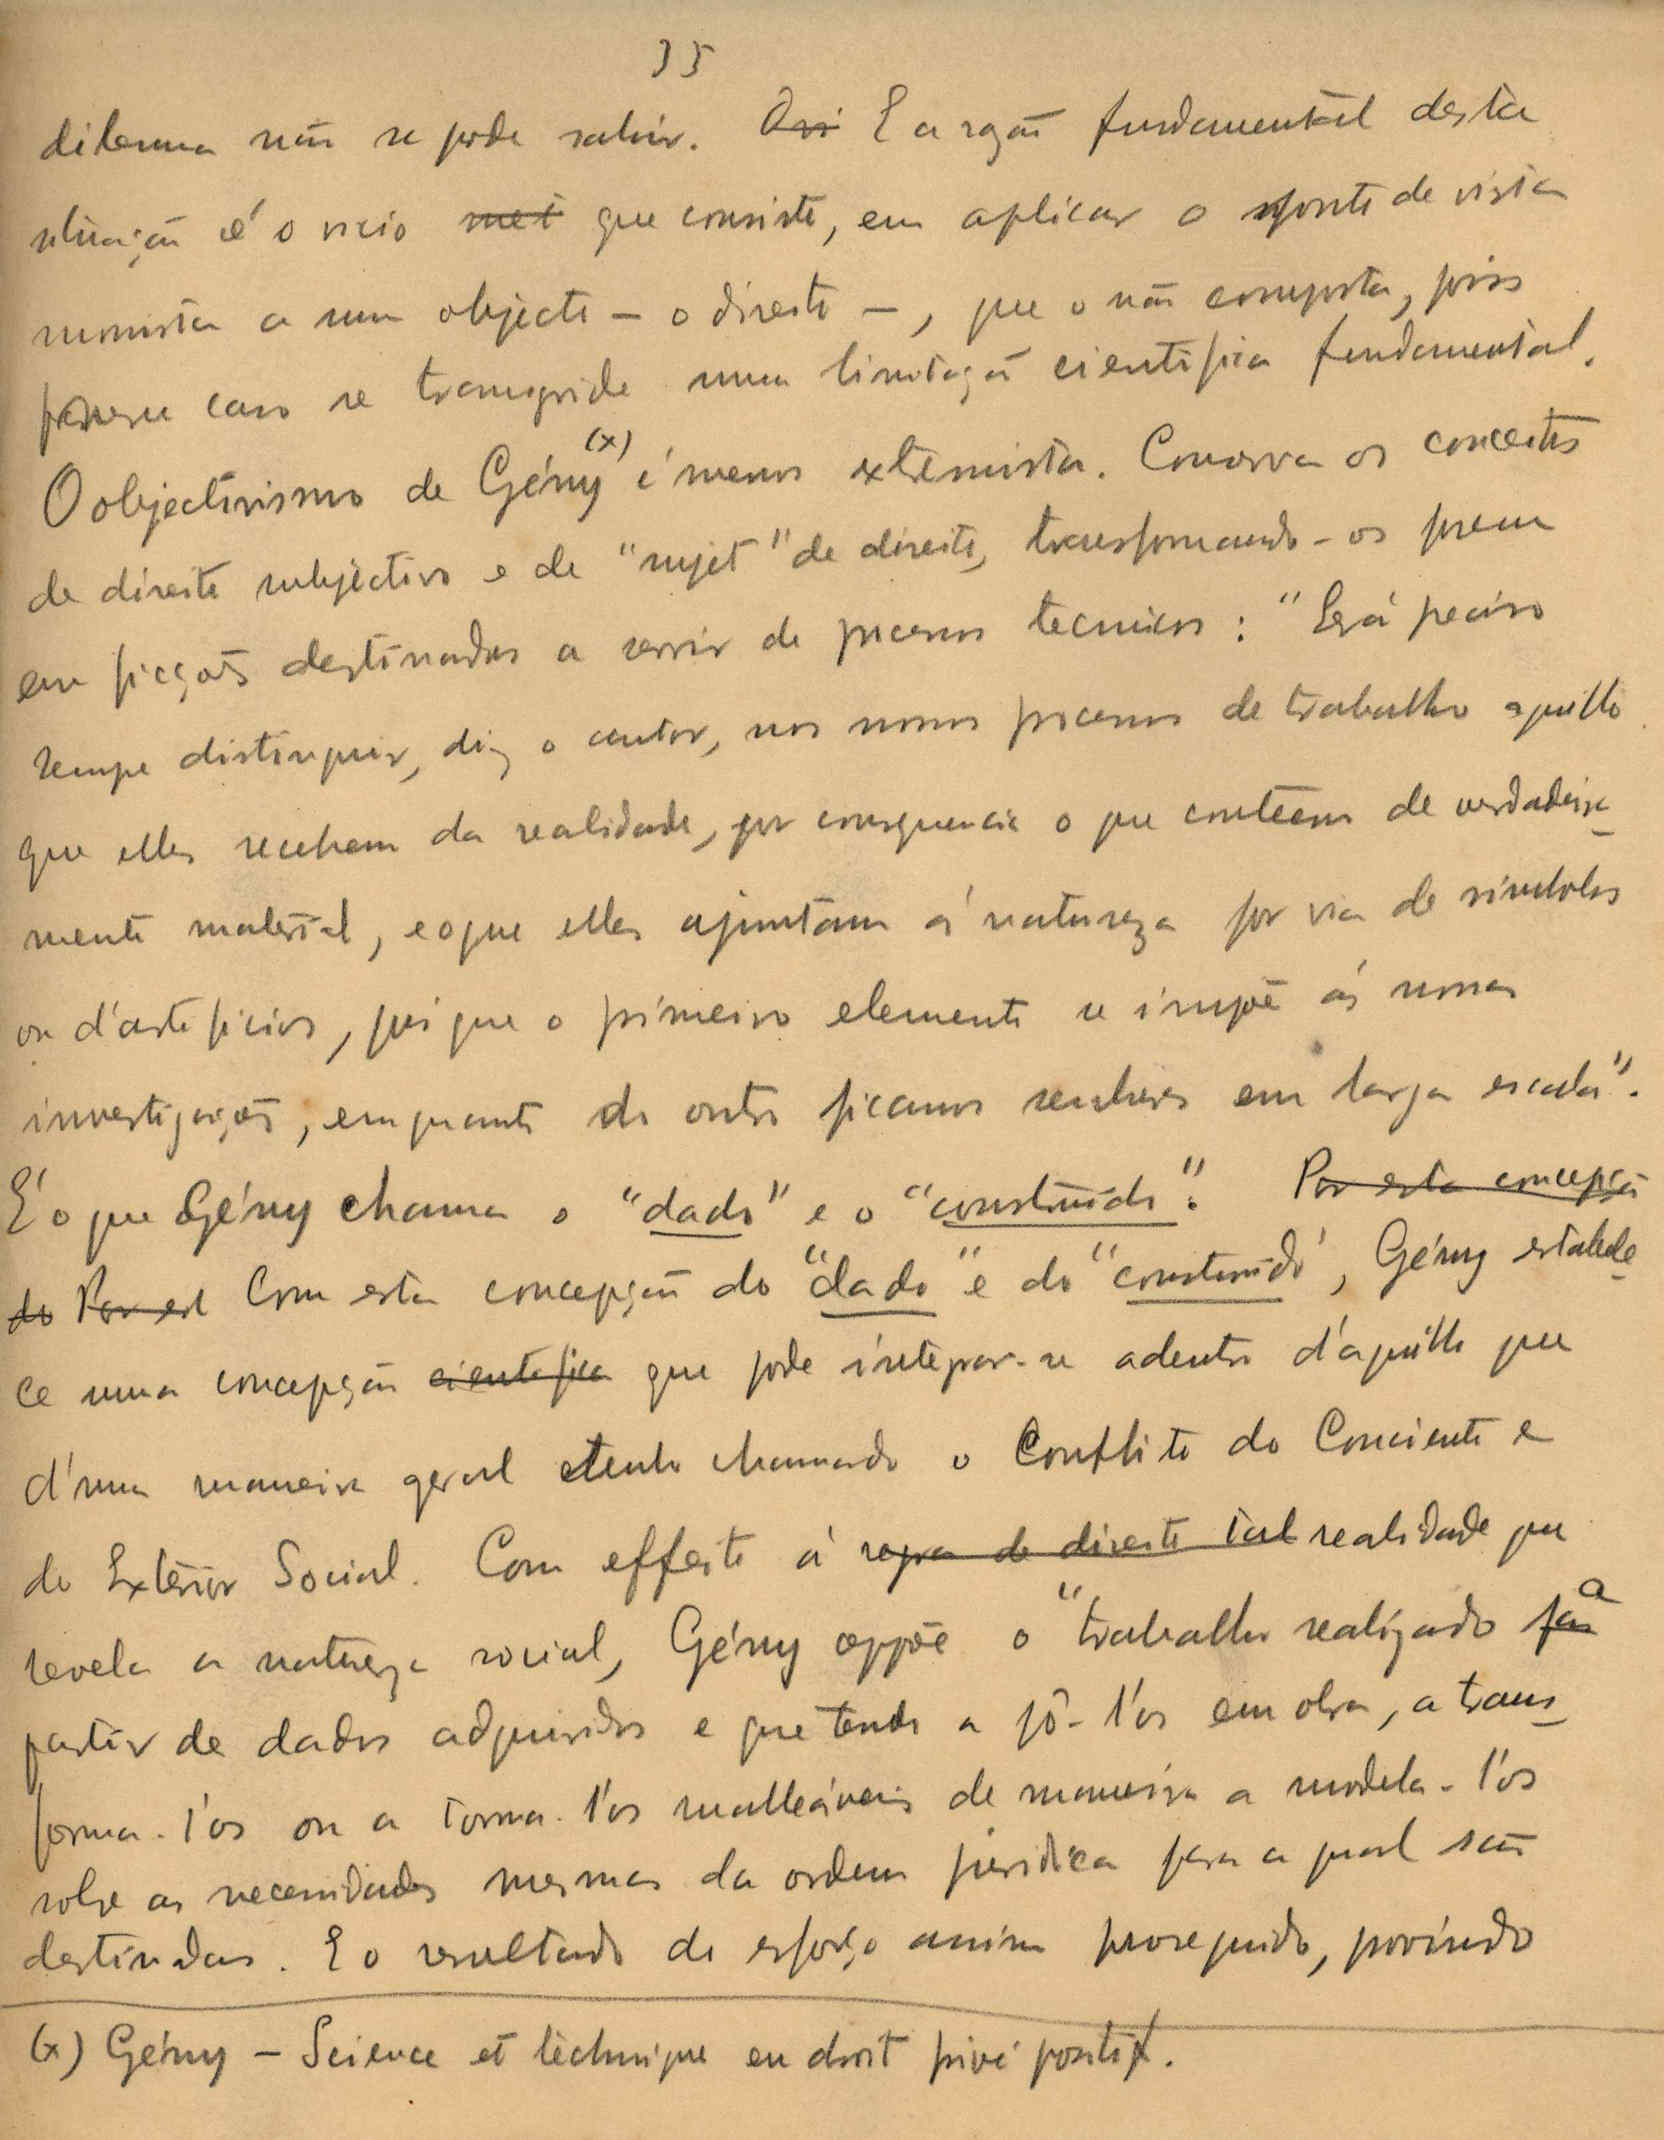 35
dilemma não se pode sahir. E a razão fundamental desta
situação é o vicio que consiste, em aplicar o ponto de vista
monista a um objecto – o direito –, que o não comporta, pois
nesse caso se transgride uma limitação cientifica fundamental.
O objectivismo de Gény (x) é menos extremista. Conserva os conceitos
de direito subjectivo e de "sujet" de direito, transformando-os porem
em ficções destinadas a servir de processos tecnicos: "Será preciso
sempre distinguir, diz o autor, nos nossos processos de trabalho aquillo
que elles recebem da realidade, por consequencia o que conteem de verdadeira-
mente material, e o que elles ajuntam á natureza por via de simbolos
ou d'artificios, pois que o primeiro elemento se impõe ás nossas
investigações, emquanto do outro ficamos senhores em larga escala".
É o que Gény chama o "dado" e o "construido". Por esta concepção
do Por est Com esta concepção do "dado" e do "construido", Gény estabele-
ce uma concepção cientifica que pode integrar-se adentro d'aquillo que
d'uma maneira geral tenho chamado o Conflito do Conciente e
do Exterior Social. Com effeito á regra de direito tal realidade que
revela a natureza social, Gény oppõe o "trabalho realizado a
partir de dados adquiridos e que tende a pô-l'os em obra, a trans-
forma-l'os ou a torna-l'os malleáveis de maneira a modela-l'os
sobre as necessidades mesmas da ordem juridica para a qual são
destinados. E o resultado do esforço assim proseguido, provindo
(x) Gény – Science et technique en droit privé positif.